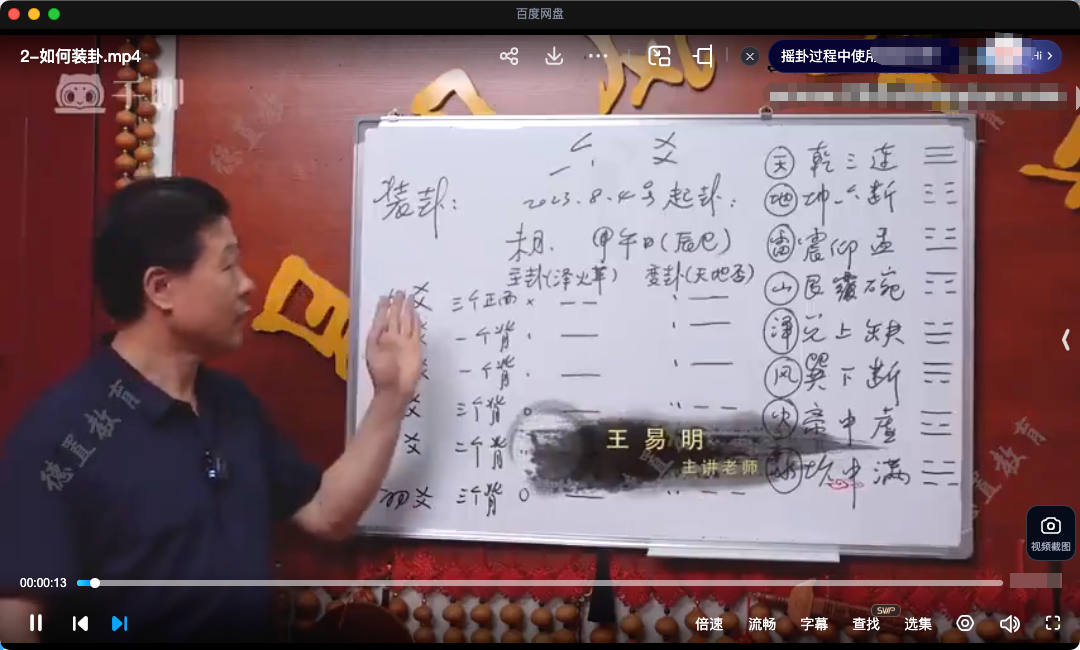 百度网盘
2-如何装卦.mp4
摇卦过程中使用
Hi
德置教育
爻
装卦：
2023.8.4号起卦：
未月. 甲午日(辰巳)
主卦(泽火革) 变卦(天地否)
爻 三个正面 ×
一个背
一个背
爻 三个背 ○
爻 二个背
初爻 三个背 ○
天 乾三连 ☰
地 坤六断 ☷
雷 震仰盂 ☳
山 艮覆碗 ☶
泽 兑上缺 ☱
风 巽下断 ☴
火 中虚 ☲
坎中满 ☵
王易明
主讲老师
德置教育
德置教育
视频截图
00:00:13
倍速
流畅
字幕
SVIP
查找
选集